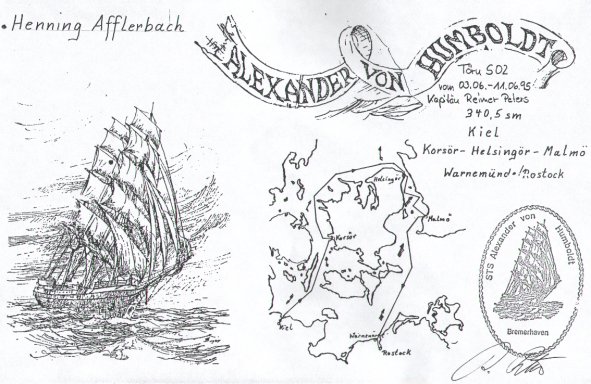 • Henning Afflerbach
ALEXANDER VON HUMBOLDT
Törn 502
vom 03.06.-11.06.95
Kapitän Reimer Peters
340,5 sm
Kiel
Korsör - Helsingör - Malmö
Warnemünd./Rostock
Helsingör
Malmö
Korsör
Kiel
Warnemünde
Rostock
STS Alexander von Humboldt
Bremerhaven